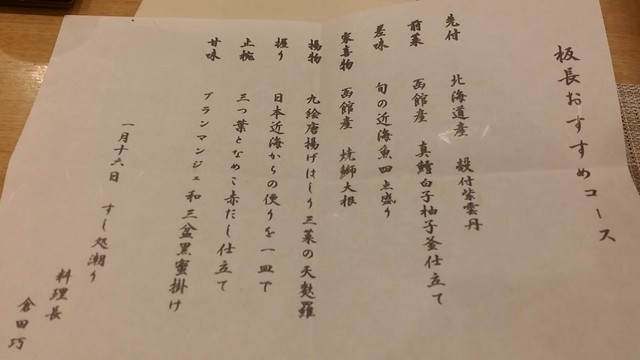 板長おすすめコース
先付 北海道産 殻付紫雲丹
前菜 函館産 真鱈白子柚子釜仕立て
差味 旬の近海魚四点盛り
家喜物 函館産 焼鰤大根
揚物 九絵唐揚げはしり三菜の天麩羅
握り 日本近海からの便りを一皿で
止椀 三つ葉となめこ赤だし仕立て
甘味 ブランマンジェ 和三盆黒蜜掛け
一月十六日 すし処潮り
料理長
倉田巧